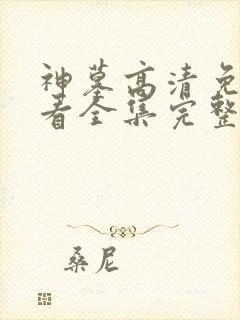 神墓高清免
看全集完整
桑尼